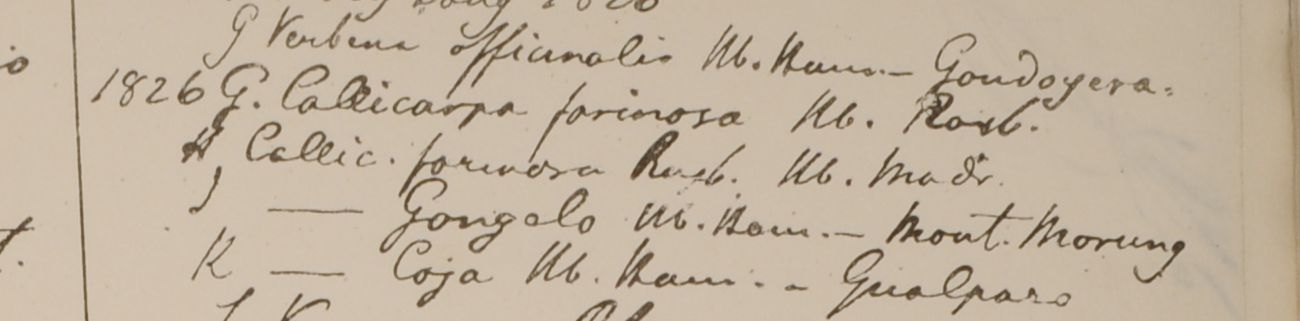 G Verbena officinalis Hb. Ham. - Gondoyera.
1826 G. Callicarpa farinosa Hb. Roxb.
H Callic. farinosa Roxb. Hb. Madr.
J — Gongelo Hb. Ham. - Mont. Morung
K — Coja Hb. Ham. - Gualparo